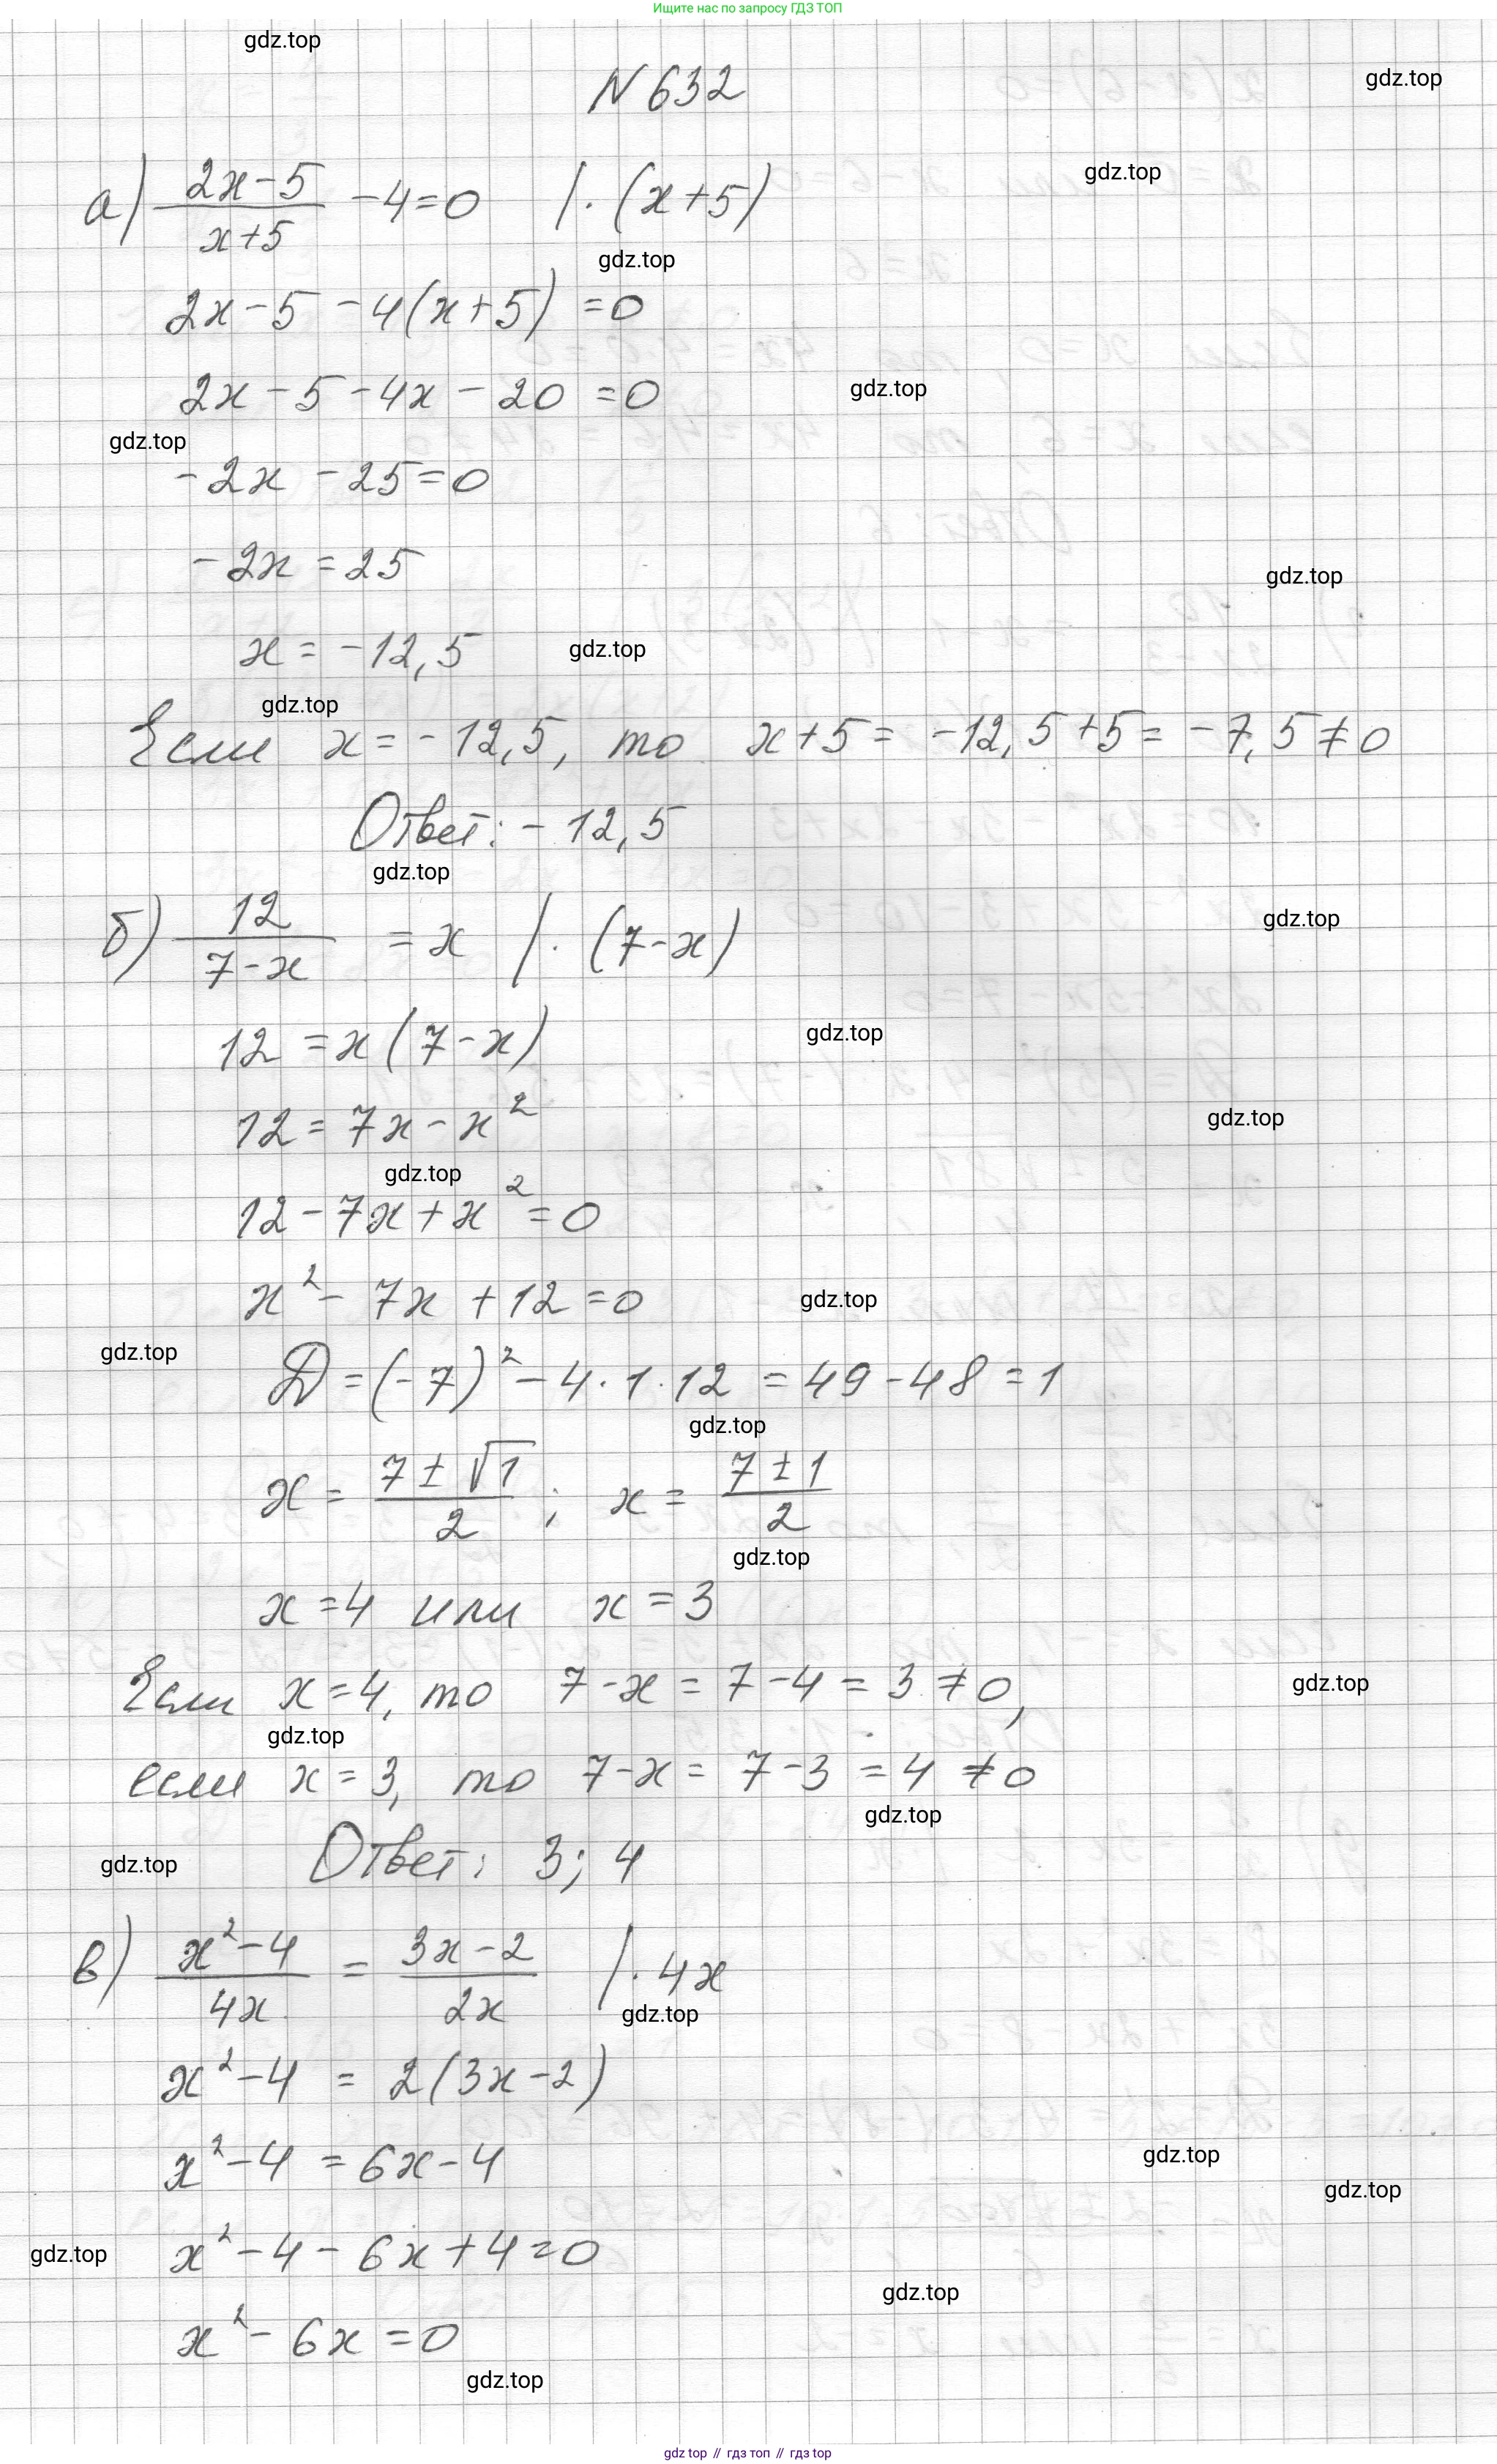 Ищите нас по запросу ГДЗ ТОП
gdz.top
N 632
gdz.top
а) (2x-5)/(x+5) -4=0 |·(x+5)
gdz.top
gdz.top
2x-5-4(x+5)=0
2x-5-4x-20=0
gdz.top
gdz.top
-2x-25=0
-2x=25
gdz.top
x=-12,5
gdz.top
gdz.top
Если x=-12,5, то x+5=-12,5+5=-7,5≠0
Ответ: -12,5
gdz.top
б) 12/(7-x) =x |·(7-x)
gdz.top
12=x(7-x)
gdz.top
12=7x-x²
gdz.top
gdz.top
12-7x+x²=0
x²-7x+12=0
gdz.top
gdz.top
D=(-7)²-4·1·12=49-48=1
gdz.top
x=(7±√1)/2; x=(7±1)/2
gdz.top
x=4 или x=3
Если x=4, то 7-x=7-4=3≠0,
gdz.top
gdz.top
если x=3, то 7-x=7-3=4≠0
gdz.top
Ответ: 3; 4
gdz.top
в) (x²-4)/4x = (3x-2)/2x |·4x
gdz.top
x²-4=2(3x-2)
x²-4=6x-4
gdz.top
gdz.top
x²-4-6x+4=0
gdz.top
gdz.top
x²-6x=0
gdz.top
gdz top // гдз топ // гдз top